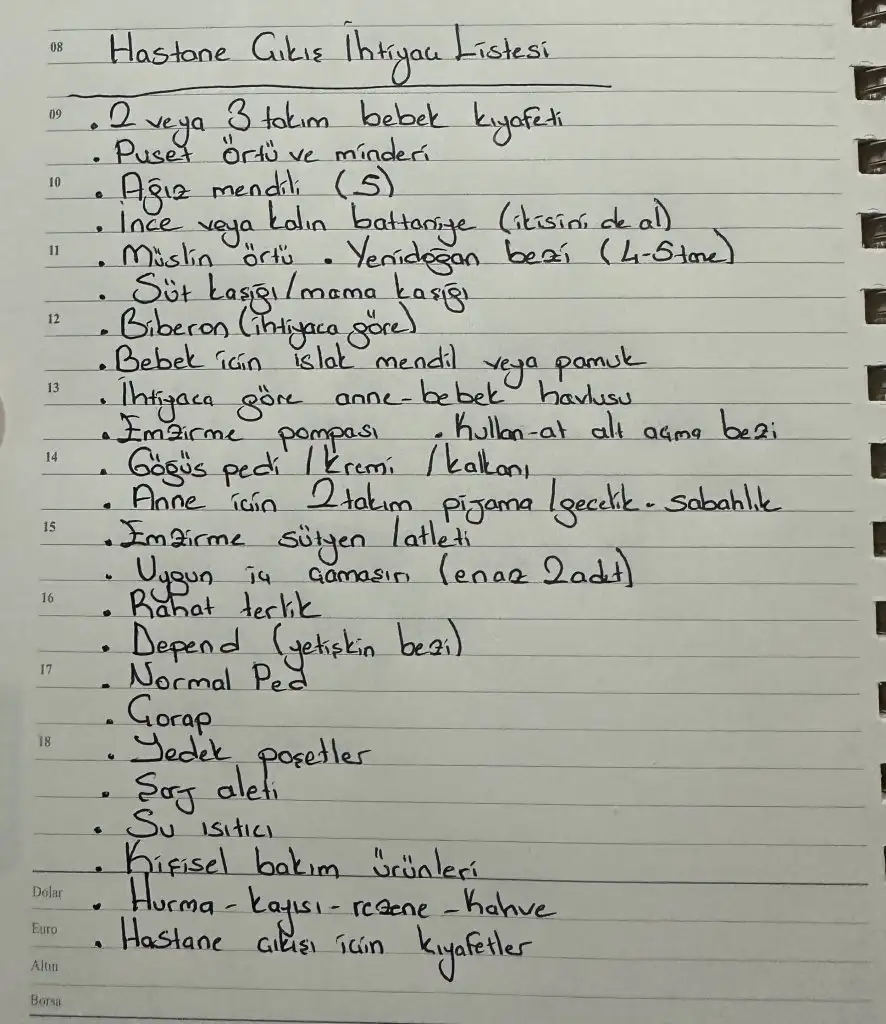 08 Hastane Çıkış İhtiyacı Listesi
09 • 2 veya 3 takım bebek kıyafeti
• Puset örtü ve minderi
10 • Ağız mendili (5)
• İnce veya kalın battaniye (ikisini de al)
11 • Müslin örtü • Yenidoğan bezi (4-5 tane)
• Süt kaşığı/mama kaşığı
12 • Biberon (ihtiyaca göre)
• Bebek için ıslak mendil veya pamuk
13 • İhtiyaca göre anne-bebek havlusu
• Emzirme pompası • Kullan-at alt açma bezi
14 • Göğüs pedi / kremi / kalkanı
• Anne için 2 takım pijama / gecelik - sabahlık
15 • Emzirme sütyen / atleti
• Uygun iç çamaşırı (enaz 2 adet)
16 • Rahat terlik
• Depend (yetişkin bezi)
17 • Normal Ped
• Çorap
18 • Yedek poşetler
• Şarj aleti
• Su ısıtıcı
• Kişisel bakım ürünleri
Dolar • Hurma - kayısı - rezene - kahve
Euro • Hastane çıkışı için kıyafetler
Altın
Borsa